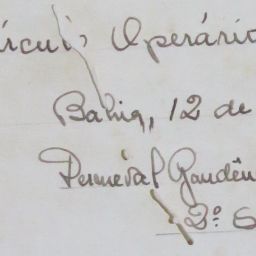 írculo Operário
Bahia, 12 de
Permeval Gaudên
2º S